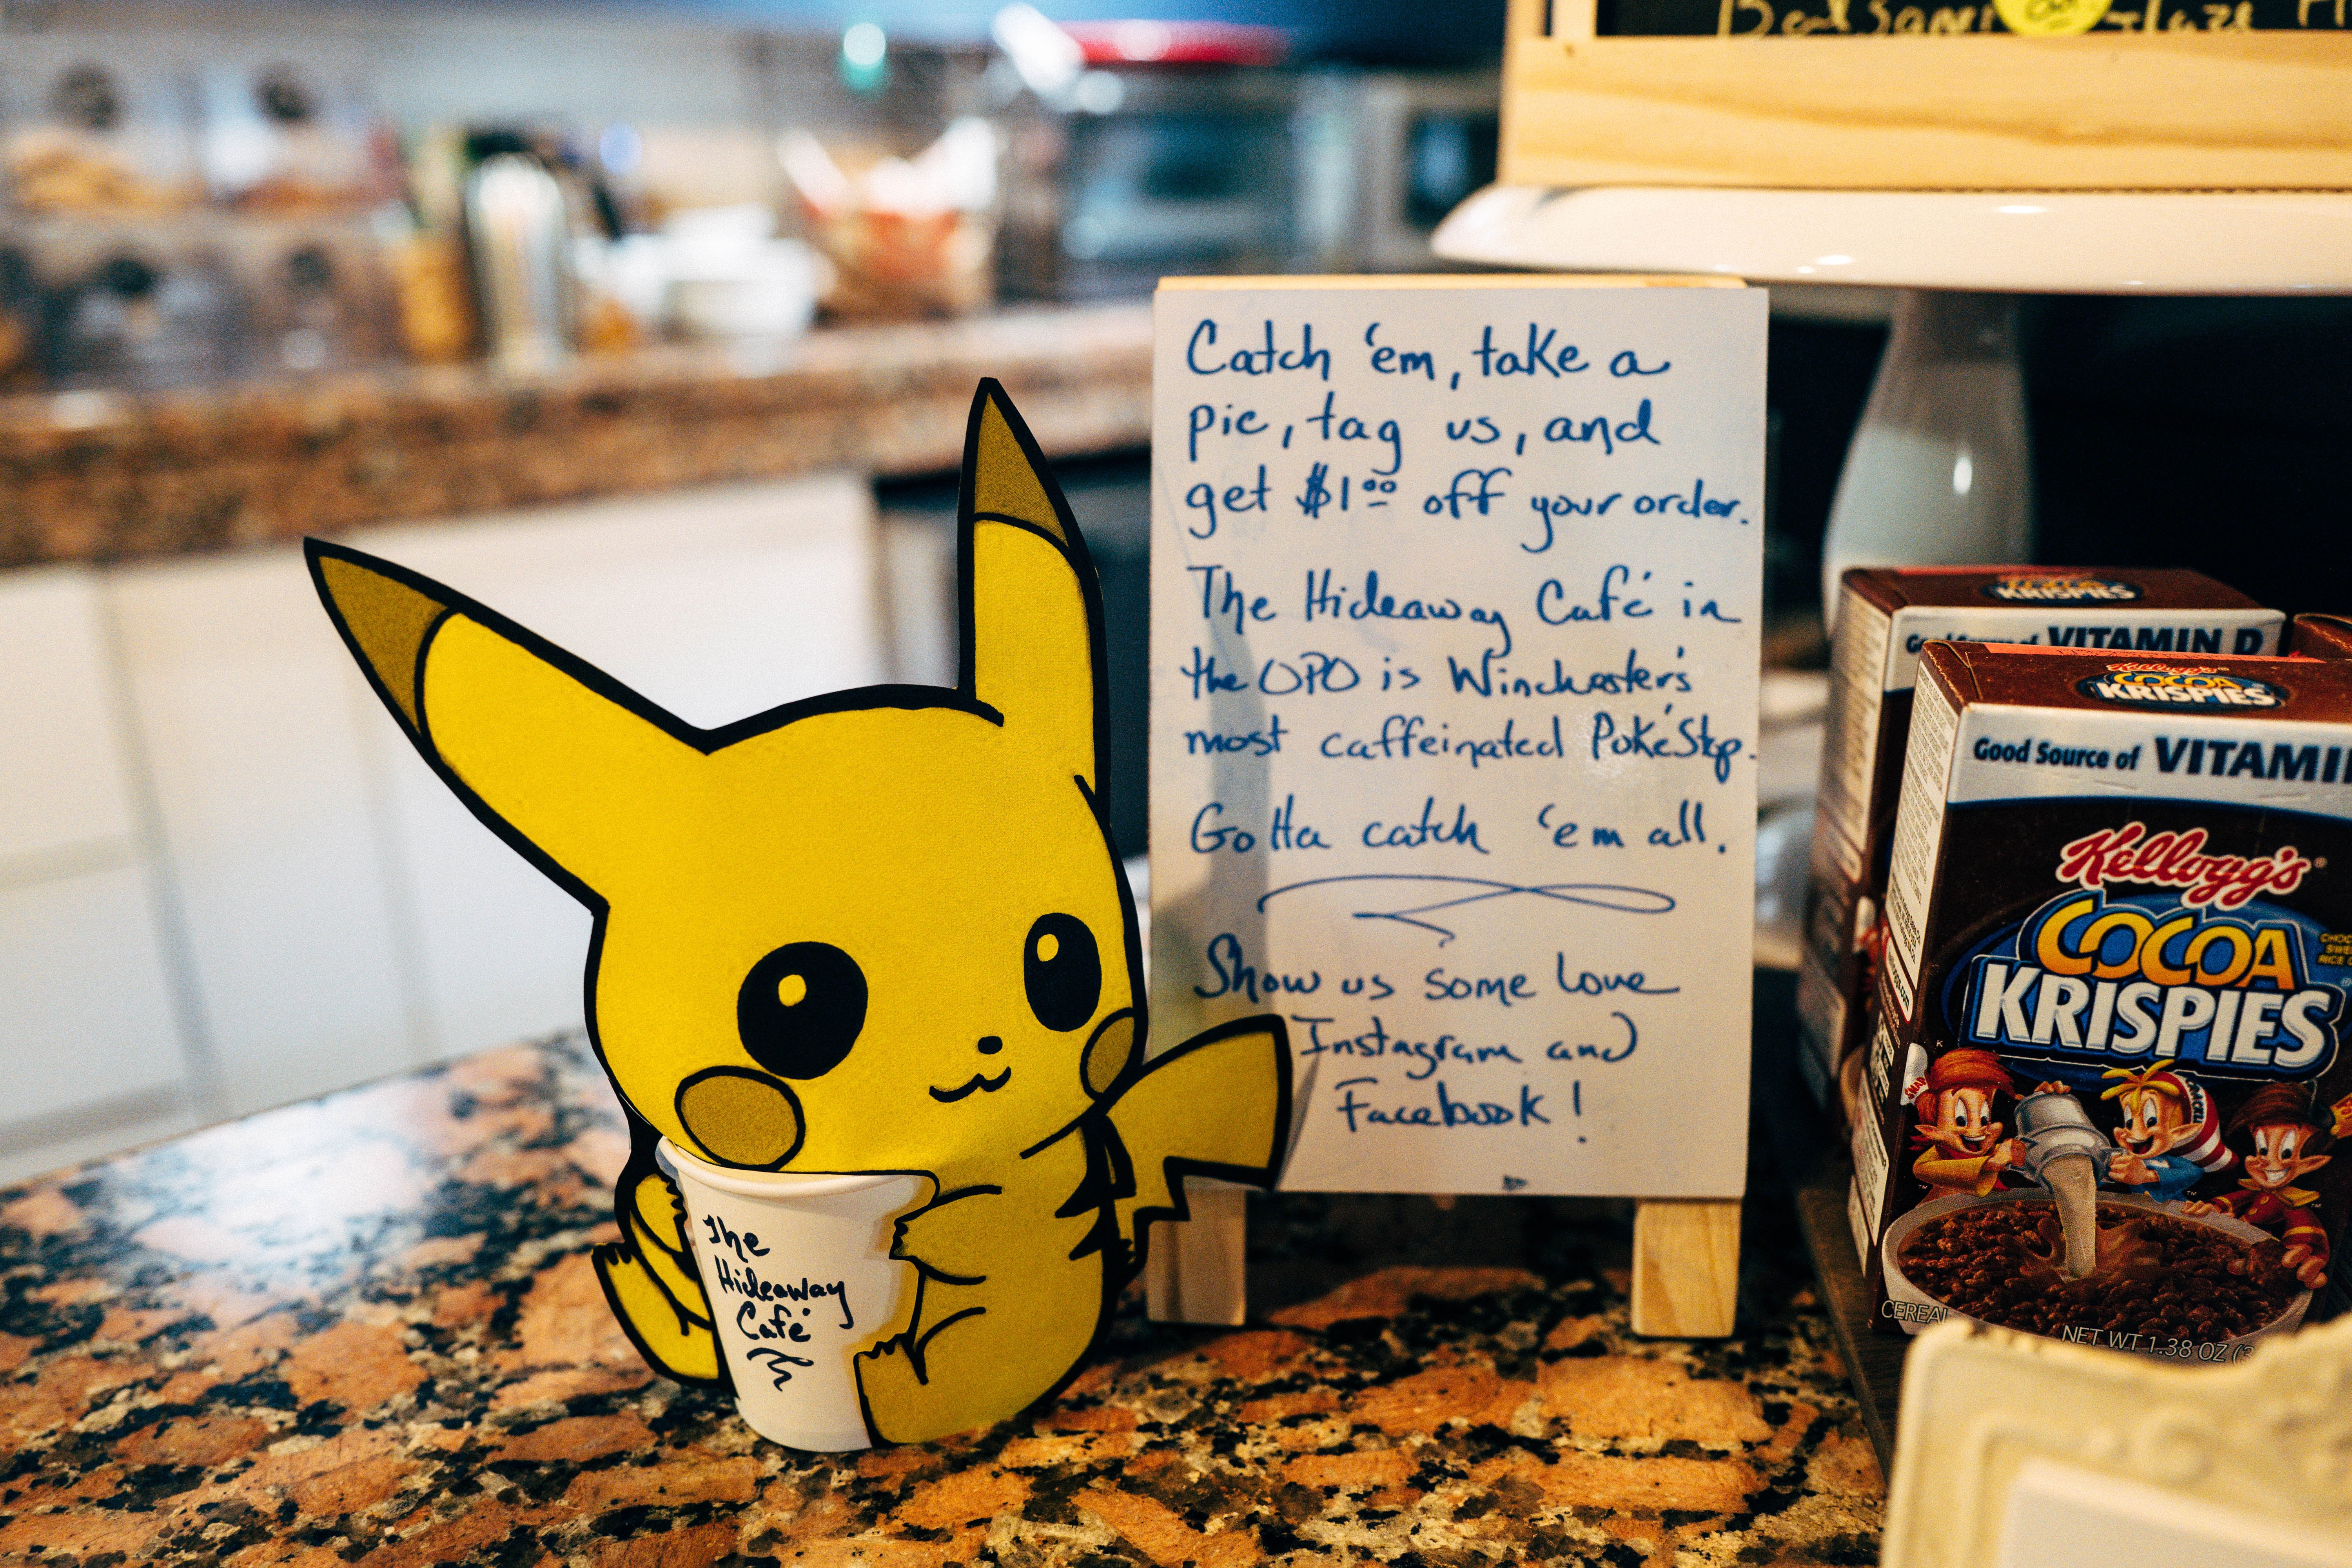 Balsamic Glaze
Catch 'em, take a
pic, tag us, and
get $1.00 off your order.
The Hideaway Café in
the OPO is Winchester's
most caffeinated PokéStop.
Gotta catch 'em all.
Show us some love
Instagram and
Facebook!
The
Hideaway
Café
COCOA
KRISPIES
Good Source of VITAMIN D
COCOA
KRISPIES
Good Source of VITAMI
Kellogg's®
COCOA
KRISPIES
SNAP
CEREAL
NET WT 1.38 OZ (3